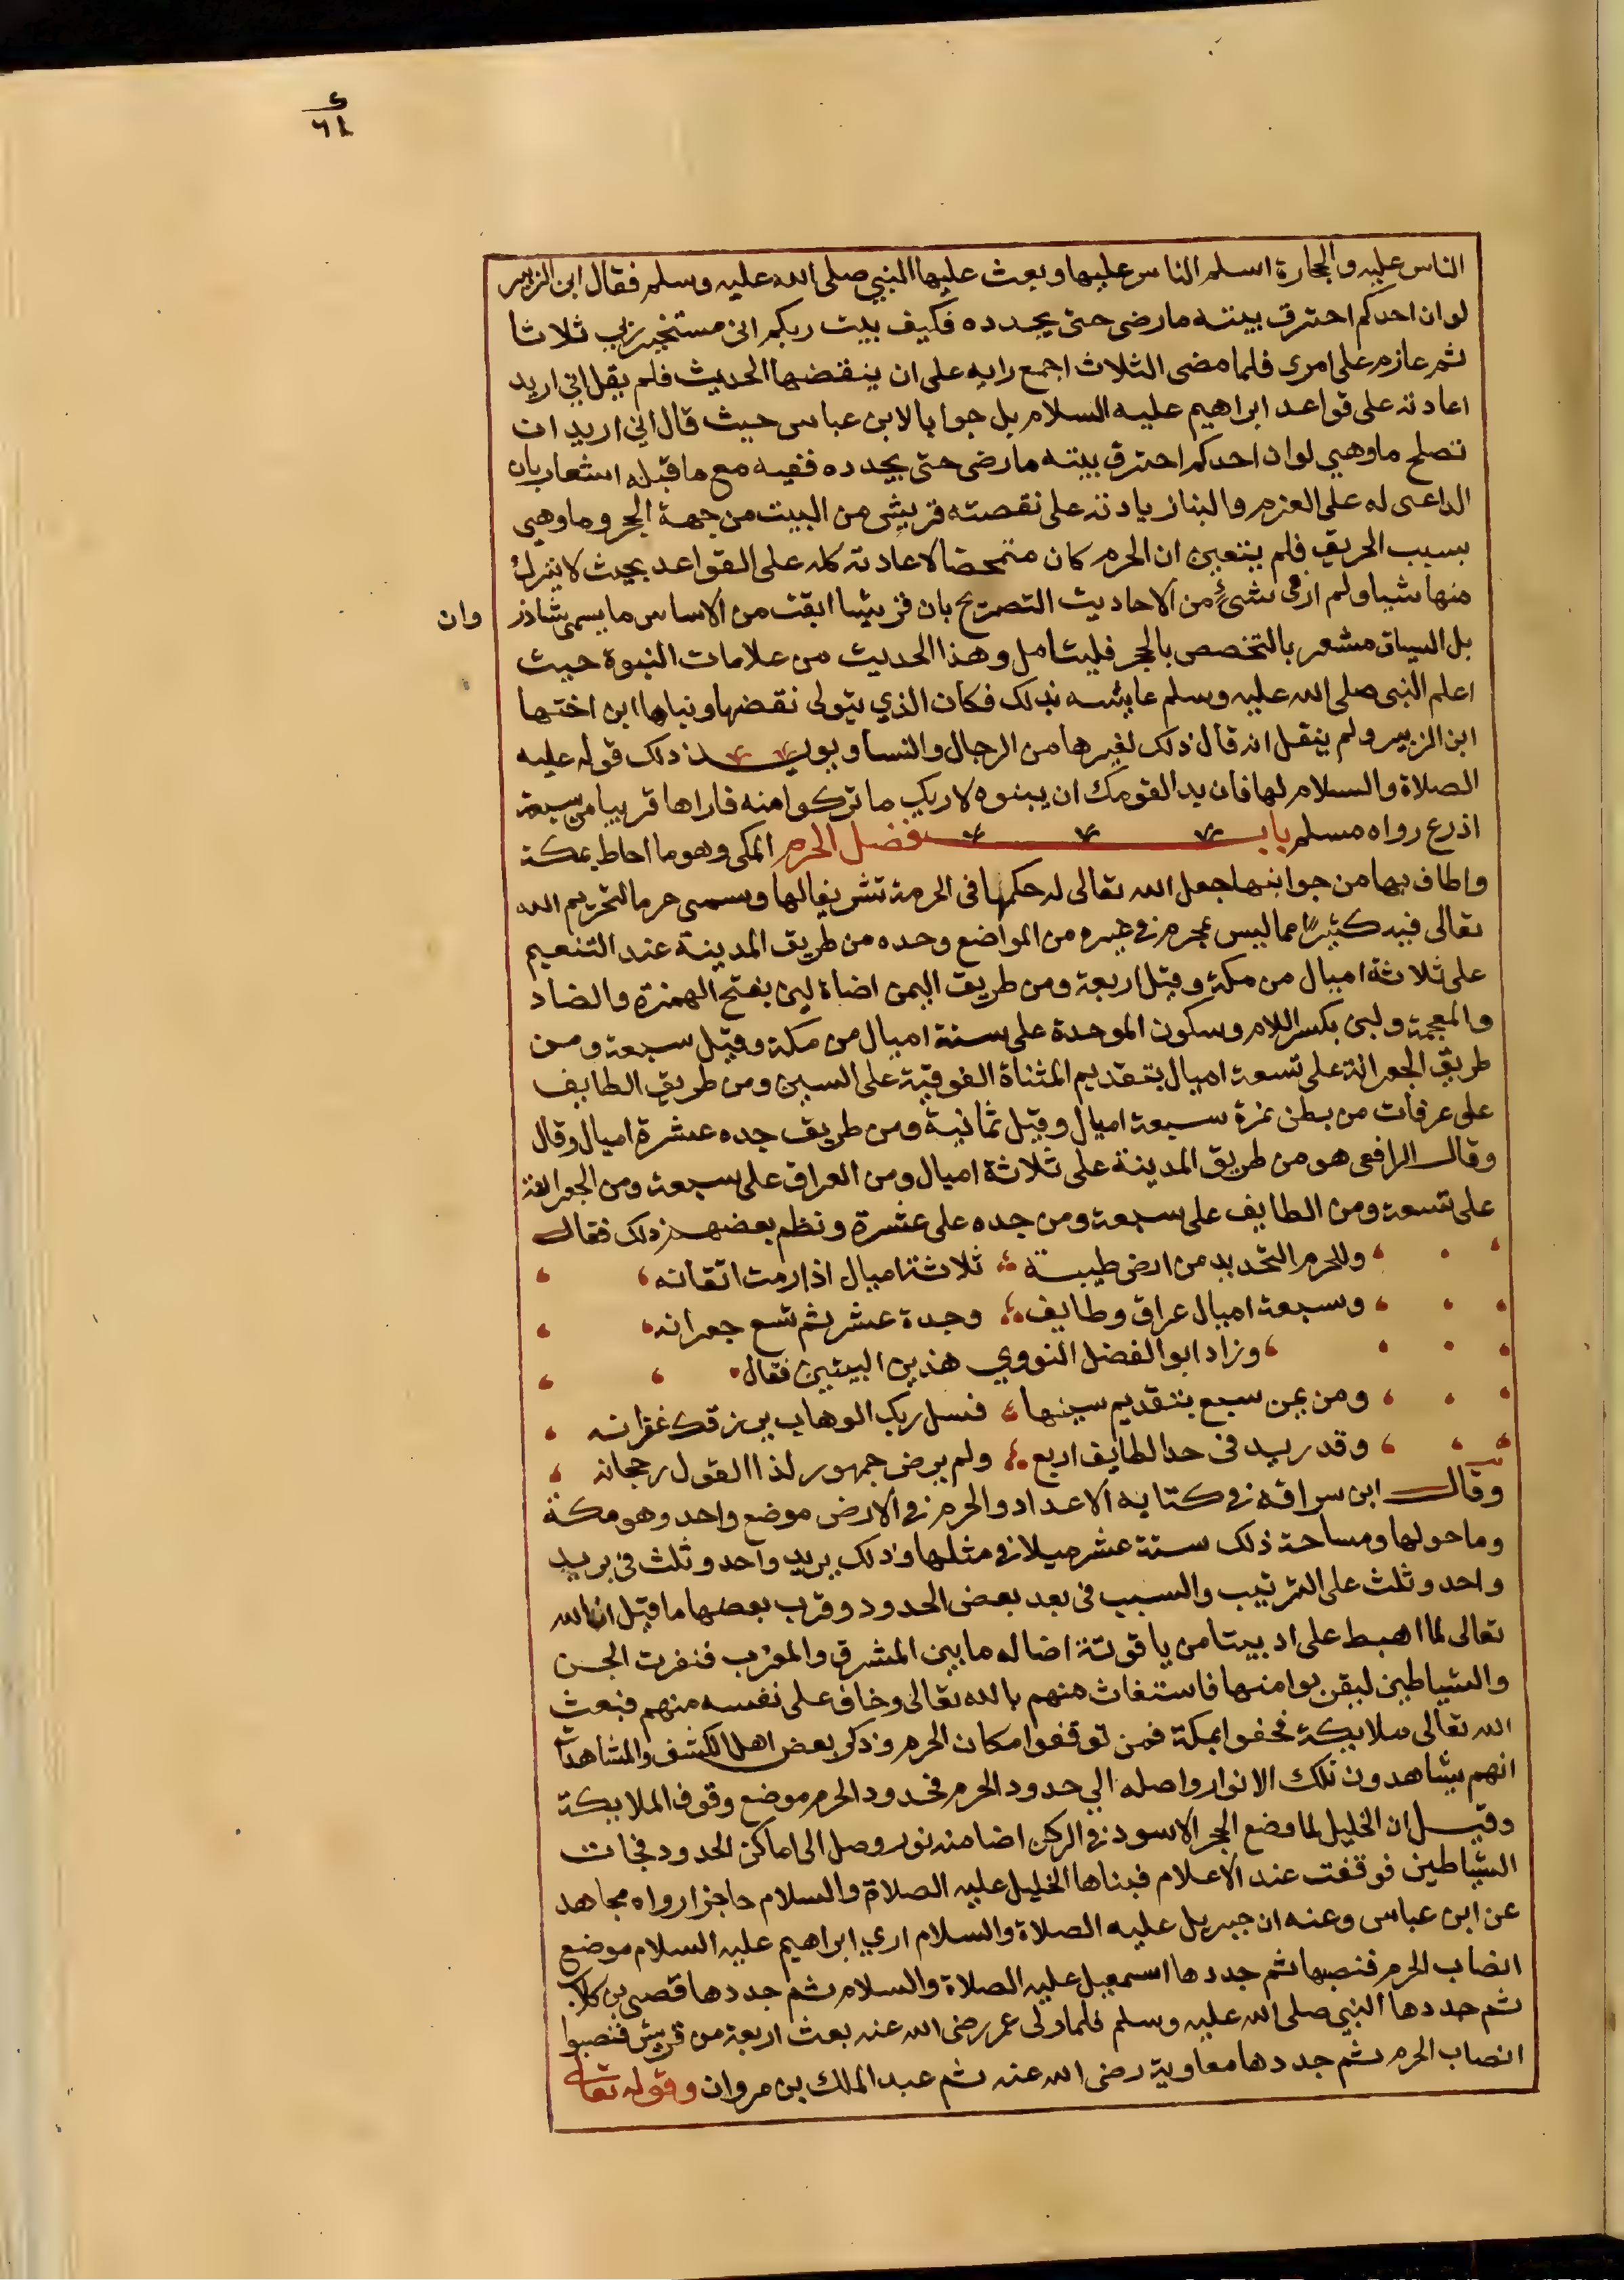 ٤
٦٤
الناس عليه والحجارة اسلم الناس عليها وبعث عليها النبي صلى الله عليه وسلم فقال ابن الزبير
لو ان احدكم احترق بيته ما رضى حتى يجدده فكيف بيت ربكم انى مستخير ربي ثلاثا
ثم عازم على امرى فلما مضى الثلاث اجمع رايه على ان ينقضها الحديث فلم يقل انى اريد
اعادته على قواعد ابراهيم عليه السلام بل جوابا لابن عباس حيث قال انى اريد ان
تصلح ما وهى لو ان احدكم احترق بيته ما رضى حتى يجدده ففيه مع ما قبله اشعار بان
الداعى له على العزم والبنا زيادته على نقصته قريش من البيت من جهة الحجر وما وهى
بسبب الحريق فلم يتعين ان الحرم كان متمحضا لاعادته كله على القواعد بحيث لا يترك
منها شيا ولم ار فى شئ من الاحاديث التصريح بان قريشا ابقت من الاساس ما يسمى شاذر
وان
بل السياق مشعر بالتخصص بالحجر فليتامل وهذا الحديث من علامات النبوة حيث
اعلم النبى صلى الله عليه وسلم عايشه بذلك فكان الذي يتولى نقضها وبناها ابن اختها
ابن الزبير ولم ينقل انه قال ذلك لغيرها من الرجال والنسا ويويد ذلك قوله عليه
الصلاة والسلام لها فان بدا لقومك ان يبنوه لاريك ما تركوا منه فاراها قريبا من سبعة
اذرع رواه مسلم باب فضل الحرم المكى وهو ما احاط بمكة
واطاف بها من جوانبها جعل الله تعالى له حكمها فى الحرمة تشريفا لها وسمى حرما لتحريم الله
تعالى فيه كثيرًا مما ليس بمحرم فى غيره من المواضع وحده من طريق المدينة عند التنعيم
على ثلاثة اميال من مكة وقيل اربعة ومن طريق اليمن اضاة لبن بفتح الهمزة والضاد
والمعجمة ولبن بكسر اللام وسكون الموحدة على ستة اميال من مكة وقيل سبعة ومن
طريق الجعرانة على تسعة اميال بتقديم المثناة الفوقية على السين ومن طريق الطايف
على عرفات من بطن نمرة سبعة اميال وقيل ثمانية ومن طريق جده عشرة اميال وقال
وقال الرافعى هو من طريق المدينة على ثلاثة اميال ومن العراق على سبعة ومن الجعرانة
على تسعة ومن الطايف على سبعة ومن جده على عشرة ونظم بعضهم ذلك فقال
وللحرم التحديد من ارض طيبة ثلاثة اميال اذا رمت اتقانه
وسبعة اميال عراق وطايف وجدة عشر ثم تسع جعرانه
وزاد ابو الفضل النووي هذين البيتين فقال
ومن يمن سبع بتقديم سينها فسل ربك الوهاب يرزقك غفرانه
وقد ريد فى حد الطايف اربع ولم يرض جمهور لذا القول رجحانه
وقال ابن سراقه فى كتابه الاعداد والحرم فى الارض موضع واحد وهو مكة
وما حولها ومساحة ذلك ستة عشر ميلا فى مثلها وذلك بريد واحد وثلث فى بريد
واحد وثلث على الترتيب والسبب فى بعد بعض الحدود وقرب بعضها ما قيل ان الله
تعالى لما اهبط على اد بيتا من ياقوتة اضا له ما بين المشرق والمغرب فنفرت الجن
والشياطين ليقربوا منها فاستغاث منهم بالله تعالى وخاف على نفسه منهم فبعث
الله تعالى ملايكة فحفوا بمكة فمن توقفوا مكان الحرم وذكر بعض اهل الكشف والمشاهدات
انهم يشاهدون تلك الانوار واصله الي حدود الحرم فحدود الحرم موضع وقوف الملايكة
وقيل ان الخليل لما وضع الحجر الاسود فى الركن اضا منه نور وصل الى اماكن الحدود فجات
الشياطين فوقفت عند الاعلام فبناها الخليل عليه الصلاة والسلام حاجزا رواه مجاهد
عن ابن عباس وعنه ان جبريل عليه الصلاة والسلام اري ابراهيم عليه السلام موضع
انضاب الحرم فنصبها ثم جددها اسمعيل عليه الصلاة والسلام ثم جددها قصى بن كلاب
ثم جددها النبي صلى الله عليه وسلم فلما ولى عمر رضى الله عنه بعث اربعة من قريش فنصبوا
انصاب الحرم ثم جددها معاوية رضى الله عنه ثم عبد الملك بن مروان وقوله تعالى